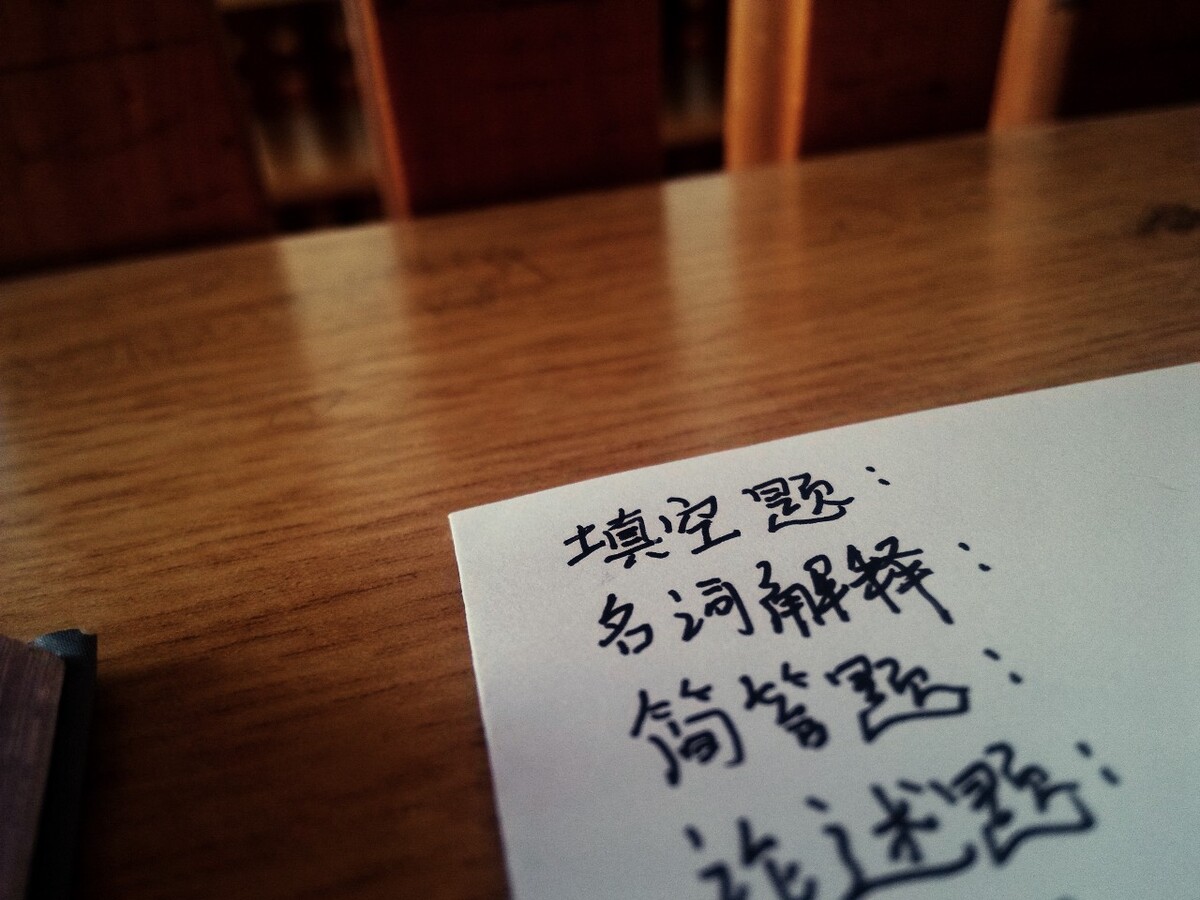 填空题：
名词解释：
简答题：
论述题：